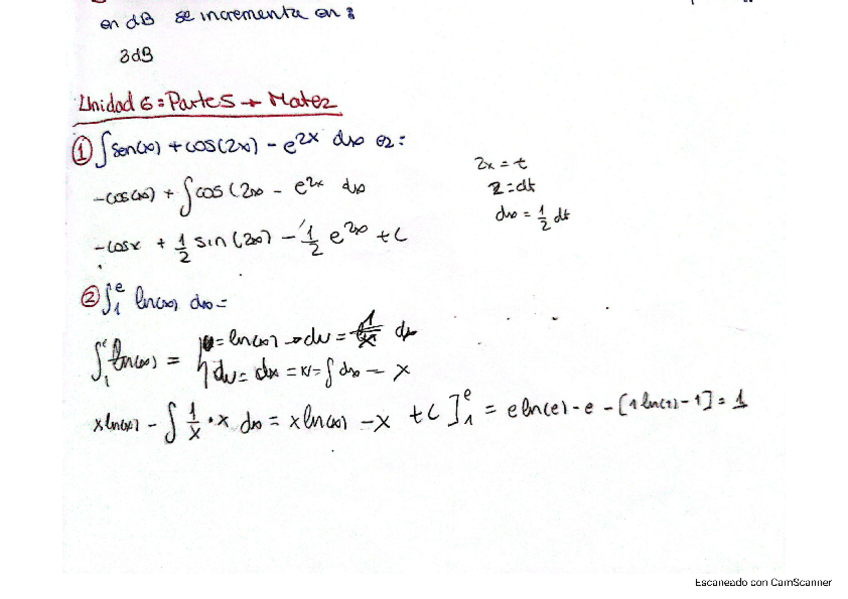 en dB se incrementa en:
3dB
Unidad 6: Partes + Mate2
① ∫sen(x) + cos(2x) - e^2x dx es:
-cos(x) + ∫cos(2x - e^2x dx
2x = t
2 = dt
dx = 1/2 dt
-cosx + 1/2 sin(2x) - 1/2 e^2x + C
② ∫_1^e ln(x) dx =
∫_1^e ln(x) = { u = ln(x) → du = 1/x dx
dv = dx = v = ∫dx = x
xln(x) - ∫ 1/x · x dx = xln(x) - x + C ]_1^e = e ln(e) - e - [1 ln(1) - 1] = 1
Escaneado con CamScanner